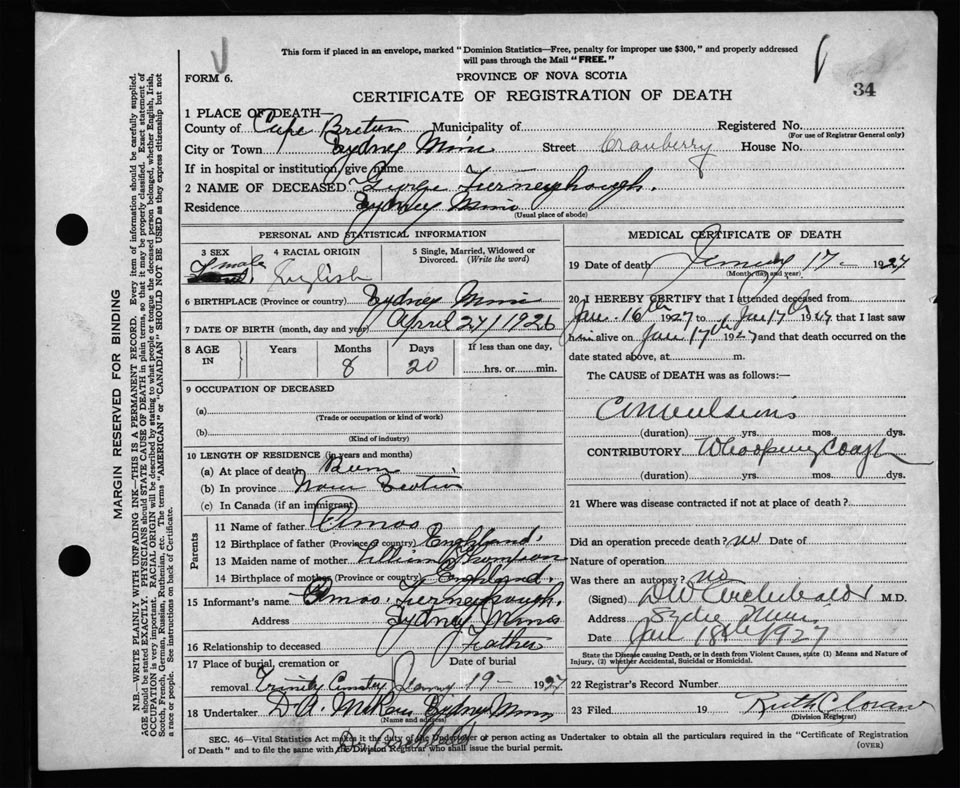 This form if placed in an envelope, marked "Dominion Statistics—Free, penalty for improper use $300," and properly addressed
will pass through the Mail "FREE."
FORM 6.
PROVINCE OF NOVA SCOTIA
34
CERTIFICATE OF REGISTRATION OF DEATH
1 PLACE OF DEATH—
County of Cape Breton Municipality of Registered No.
(For use of Registrar General only)
City or Town Sydney Mines Street Cranberry House No.
If in hospital or institution, give name
2 NAME OF DECEASED George Turneyhough.
Residence Sydney Mines
(Usual place of abode)
PERSONAL AND STATISTICAL INFORMATION
3 SEX male
4 RACIAL ORIGIN English
5 Single, Married, Widowed or Divorced. (Write the word)
6 BIRTHPLACE (Province or country) Sydney Mines
7 DATE OF BIRTH (month, day and year) April 27/1926
8 AGE IN Years Months Days If less than one day,
8 20 hrs. or min.
9 OCCUPATION OF DECEASED
(a)
(Trade or occupation or kind of work)
(b)
(Kind of industry)
10 LENGTH OF RESIDENCE (in years and months)
(a) At place of death Born
(b) In province Nova Scotia
(c) In Canada (if an immigrant)
Parents
11 Name of father Amos
12 Birthplace of father (Province or country) England.
13 Maiden name of mother Lillian Thompson
14 Birthplace of mother (Province or country) England.
15 Informant's name Amos Turneyhough.
Address Sydney Mines
16 Relationship to deceased Father
17 Place of burial, cremation or Date of burial
removal Trinity Cemetry 19 - 1927
18 Undertaker D A. Sydney Mines
(Name and address)
MEDICAL CERTIFICATE OF DEATH
19 Date of death January 17 - 1927.
(Month, day and year)
20 I HEREBY CERTIFY that I attended deceased from
Jan. 16th 1927 to Jan 17th 1927 that I last saw
him alive on Jan 17th 1927 and that death occurred on the
date stated above, at m.
The CAUSE of DEATH was as follows:—
Convulsions
(duration) yrs. mos. dys.
CONTRIBUTORY Whooping Cough
(duration) yrs. mos. dys.
21 Where was disease contracted if not at place of death?
Did an operation precede death? no Date of
Nature of operation
Was there an autopsy? no
(Signed) D W Archibald M.D.
Address Sydney Mines
Date Jan 18th 1927
State the Disease causing Death, or in death from Violent Causes, state (1) Means and Nature of
Injury, (2) whether Accidental, Suicidal or Homicidal.
22 Registrar's Record Number
23 Filed 19 Ruth
(Division Registrar)
SEC. 46—Vital Statistics Act makes it the duty of the Undertaker or person acting as Undertaker to obtain all the particulars required in the "Certificate of Registration
of Death" and to file the same with the Division Registrar who shall issue the burial permit.
(OVER)
MARGIN RESERVED FOR BINDING
N.B.—WRITE PLAINLY WITH UNFADING INK—THIS IS A PERMANENT RECORD. Every item of information should be carefully supplied.
AGE should be stated EXACTLY. PHYSICIANS should STATE CAUSE OF DEATH in plain terms, so that it may be properly classified. Exact statement of
OCCUPATION is very important. RACIAL ORIGIN will be described by stating to what people or tongue the deceased person belonged, whether English, Irish,
Scotch, French, German, Russian, Ruthenian, etc. The terms "AMERICAN" or "CANADIAN" SHOULD NOT BE USED as they express citizenship but not
a race or people. See instructions on back of Certificate.